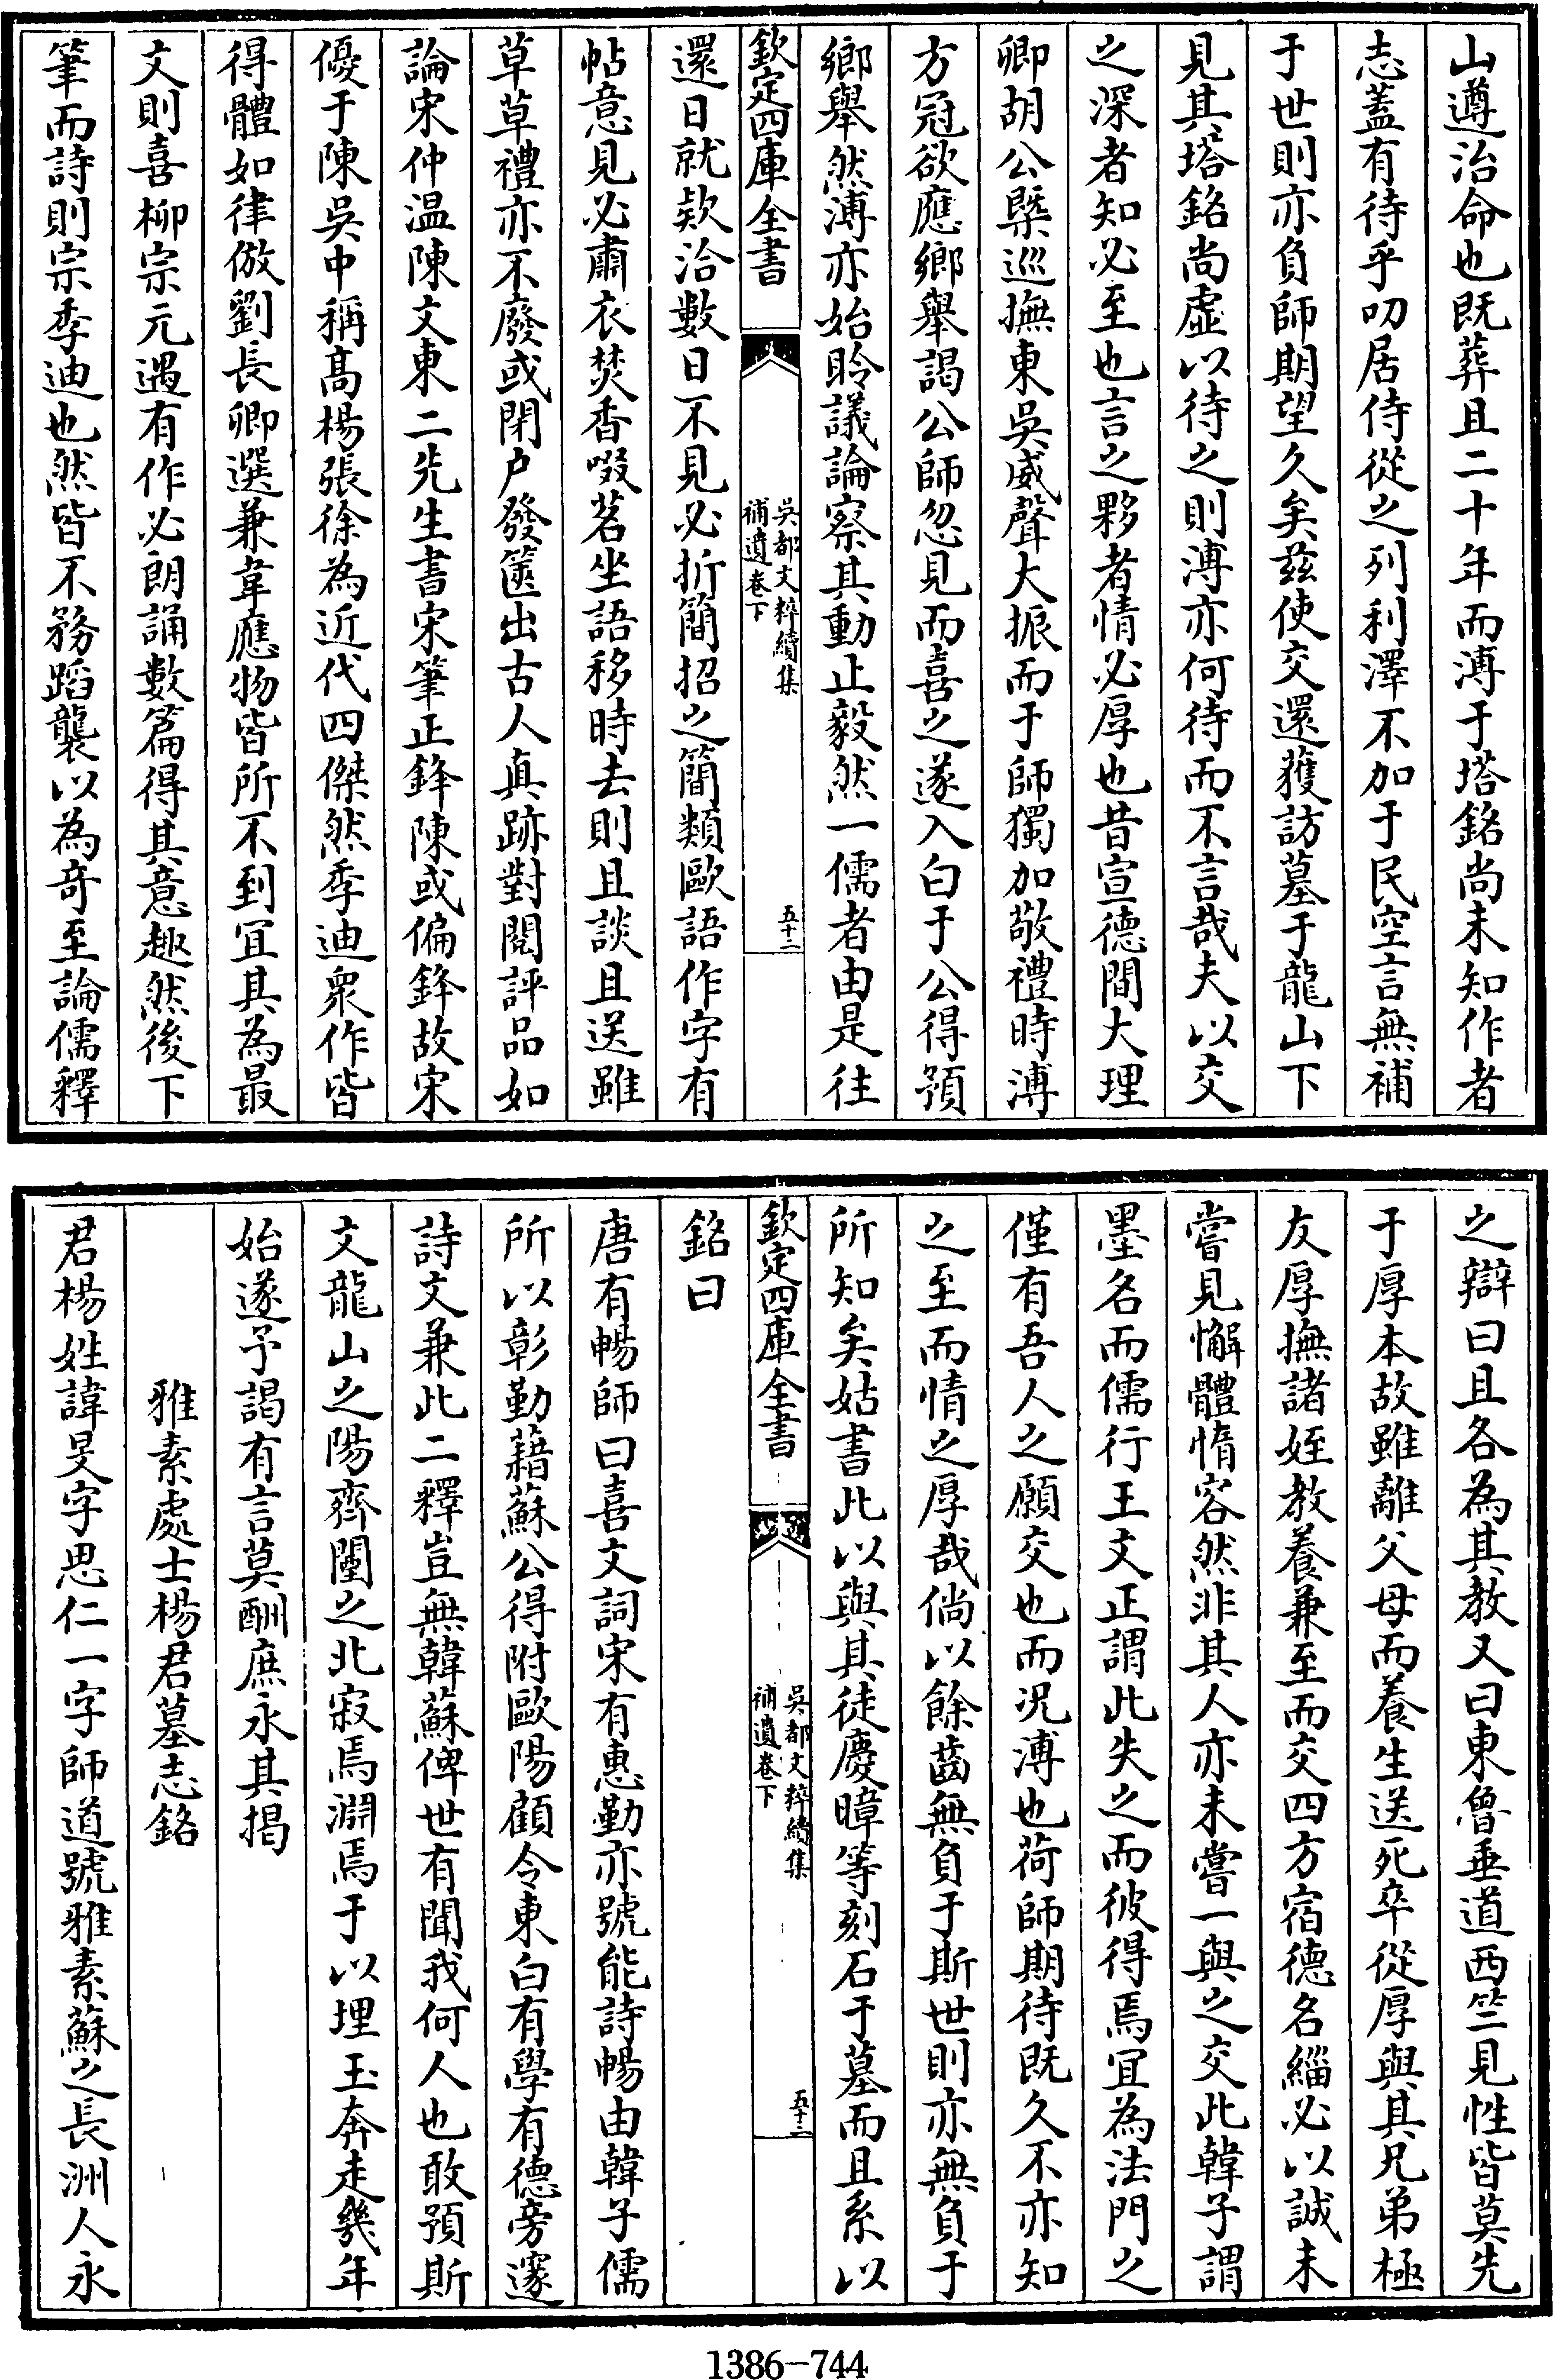 山遵治命也既葬且二十年而溥于塔銘尚未知作者
志蓋有待乎叨居侍從之列利澤不加于民空言無補
于世則亦負師期望久矣兹使交還獲訪墓于龍山下
見其塔銘尚虛以待之則溥亦何待而不言哉夫以交
之深者知必至也言之夥者情必厚也昔宣德間大理
卿胡公㮣巡撫東吳威聲大振而于師獨加敬禮時溥
方冠欲應鄉舉謁公師忽見而喜之遂入白于公得預
鄉舉然溥亦始聆議論察其動止毅然一儒者由是往
欽定四庫全書
吳都文粹續集
補遺卷下
五十二
還日就欵洽數日不見必折簡招之簡類歐語作字有
帖意見必肅衣焚香啜茗坐語移時去則且談且送雖
草草禮亦不廢或閉户發篋出古人真跡對閱評品如
論宋仲温陳文東二先生書宋筆正鋒陳或偏鋒故宋
優于陳吳中稱高楊張徐為近代四傑然季迪衆作皆
得體如律倣劉長卿選兼韋應物皆所不到宜其為最
文則喜柳宗元遇有作必朗誦數篇得其意趣然後下
筆而詩則宗季迪也然皆不務蹈襲以為奇至論儒釋
之辯曰且各為其教又曰東魯垂道西竺見性皆莫先
于厚本故雖離父母而養生送死卒從厚與其兄弟極
友厚撫諸姪教養兼至而交四方宿德名緇必以誠未
嘗見懈體惰容然非其人亦未嘗一與之交此韓子謂
墨名而儒行王文正謂此失之而彼得焉宜為法門之
僅有吾人之願交也而况溥也荷師期待既久不亦知
之至而情之厚哉倘以餘齒無負于斯世則亦無負于
所知矣姑書此以與其徒慶暲等刻石于墓而且系以
欽定四庫全書
吳都文粹續集
補遺卷下
五十三
銘曰
唐有暢師曰喜文詞宋有惠勤亦號能詩暢由韓子儒
所以彰勤藉蘇公得附歐陽顧令東白有學有德旁邃
詩文兼此二釋豈無韓蘇俾世有聞我何人也敢預斯
文龍山之陽齊闉之北寂焉淵焉于以埋玉奔走幾年
始遂予謁有言莫酬庶永其揭
雅素處士楊君墓志銘
君楊姓諱旻字思仁一字師道號雅素蘇之長洲人永
1386-744